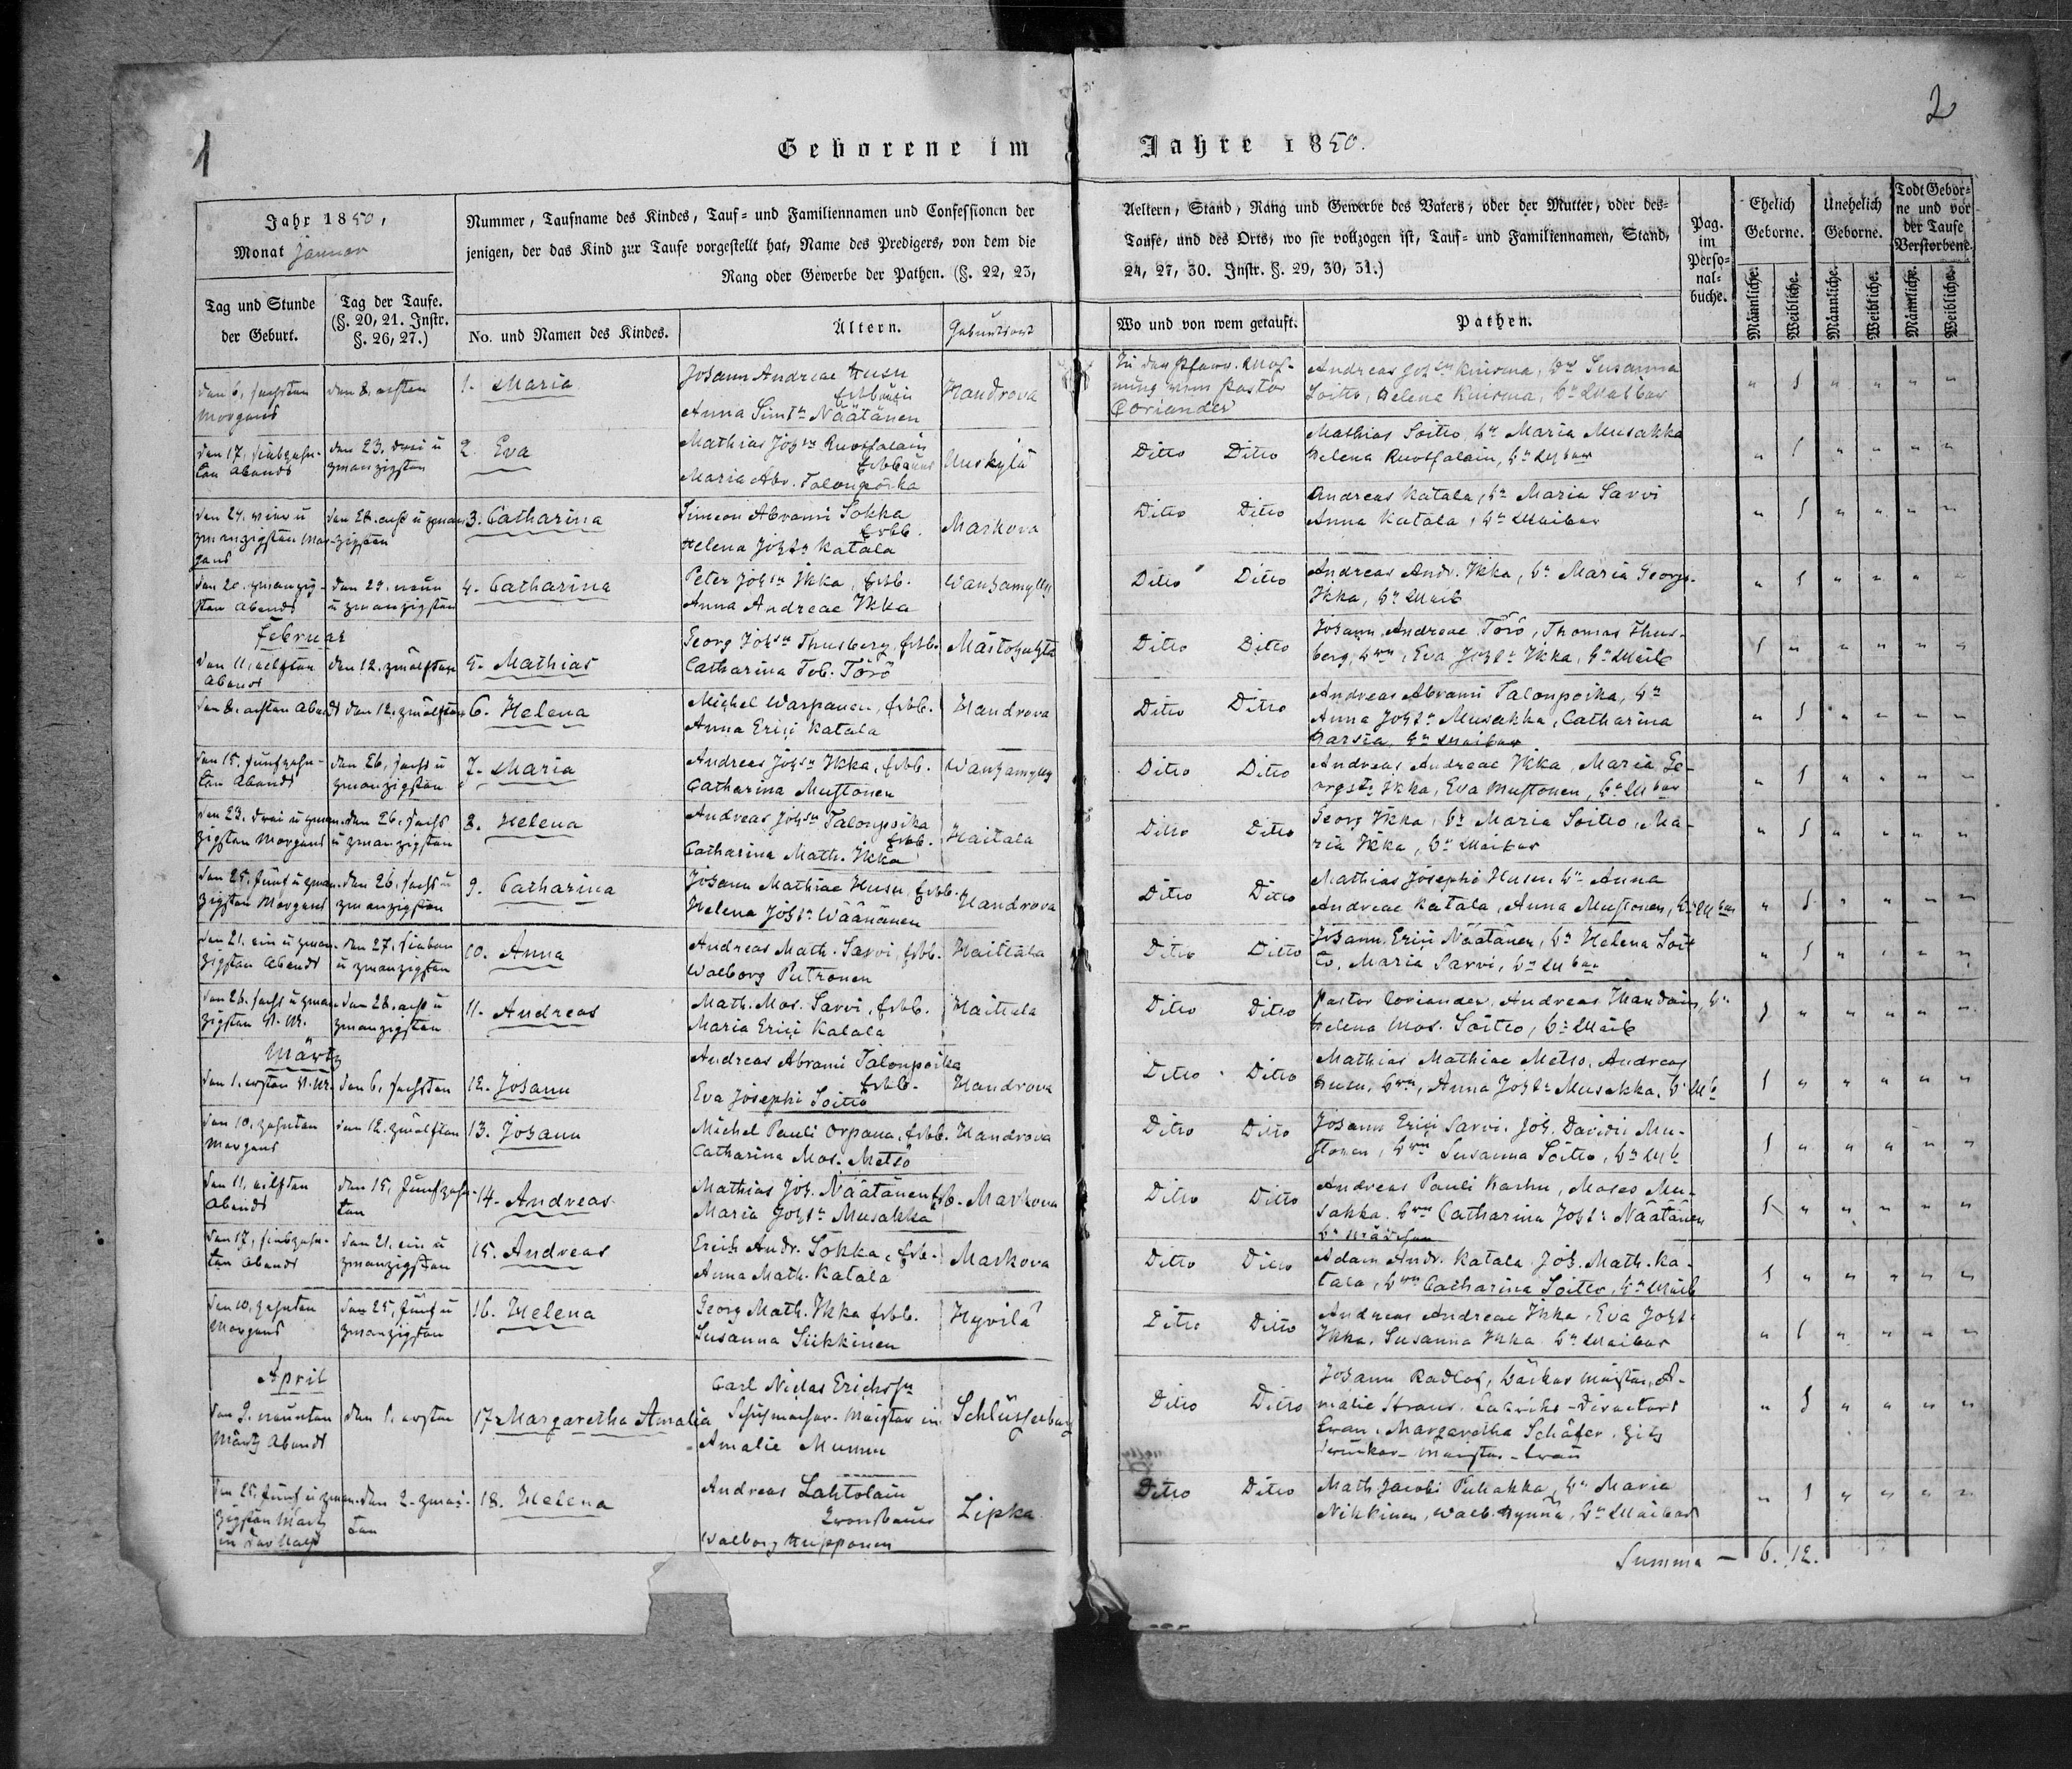 1
2
Geborene im Jahre 1850.
Jahr 1850,
Monat Januar
Nummer, Taufname des Kindes, Tauf- und Familiennamen und Confessionen der
jenigen, der das Kind zur Taufe vorgestellt hat, Name des Predigers, von dem die
Rang oder Gewerbe der Pathen. (§. 22, 23,
Aeltern, Stand, Rang und Gewerbe des Vaters, oder der Mutter, oder des-
Taufe, und des Orts, wo sie vollzogen ist, Tauf- und Familiennamen, Stand,
24, 27, 30. Instr. §. 29, 30, 31.)
Pag. im Perso-nal-buche.
Ehelich Geborne.
Unehelich Geborne.
Todt Gebor-ne und vor der Taufe Verstorbene.
Männliche. Weibliche. Männliche. Weibliche. Männliche. Weibliche.
Tag und Stunde der Geburt.
Tag der Taufe. (§. 20, 21. Instr. §. 26, 27.)
No. und Namen des Kindes.
Ältern.
Geburtsort
Wo und von wem getauft.
Pathen.
den 6, sechsten Morgens
den 8, achten
1. Maria
Johann Andreae Husu
Erbbäuer
Anna Simts Näätänen
Handrova
In der Pfarr-Woh-
nung vom Pastor
Coriander
Andreas Joh
Soitto, Helena
den 17, siebzehn-
ten Abends
den 23. drei u
zwanzigsten
2. Eva
Mathias Johsn Ruotsalain
Erbbäuer
Maria Abr. Talonpoika
Uuskylä
Ditto Ditto
Mathias Soitto, Br Maria Musakka
Helena Ruotsalain, Br Weiber
den 24. vier u
zwanzigsten Mor-
gens
den 28. acht u zwan-
zigsten
3. Catharina
Simeon Abrami Sokka
Erbb.
Helena Johts Katala
Markova
Ditto Ditto
Andreas Katala, Br Maria Savvi
Anna Katala, Br Weiber
den 20. zwanzig-
sten Abends
den 29. neun
u zwanzigsten
4. Catharina
Peter Johsn Ikka, Erbb.
Anna Andreae Ikka
Wanhamylly
Ditto Ditto
Andreas Andr. Ikka, Br Maria Georgs
Ikka, Br Weib
Februar
den 11, eilften
Abends
den 12. zwölften
5. Mathias
Georg Johsn Thusberg, Erbb.
Catharina Tob. Törö
Ditto Ditto
Johann Andreae Törö, Thomas Thus-
berg, Brn, Eva Johts Ikka, Br Weib
den 8. achten Abends
den 12. zwölften
6. Helena
Michel Warpanen, Erbb.
Anna Erici Katala
Handrova
Ditto Ditto
Andreas Abrami Talonpoika, Br
Anna Johts Musakka, Catharina
Br Weiber
den 15. fünfzehn-
ten Abends
den 26, sechs u
zwanzigsten
7. Maria
Andreas Johsn Ikka, Erbb.
Catharina Mustonen
Wanhamylly
Ditto Ditto
Andreas Andreae Ikka, Maria Ge-
orgsts Ikka, Eva Mustonen, Br Wbr
den 23. drei u zwan-
zigsten Morgens
den 26, sechs
u zwanzigsten
8. Helena
Andreas Johsn Talonpoika
Erbb.
Catharina Math. Ikka
Haitala
Ditto Ditto
Georg Ikka, Br Maria Soitto, Ma-
ria Ikka, Br Weiber
den 25. fünf u zwan-
zigsten Morgens
den 26. sechs u
zwanzigsten
9. Catharina
Johann Mathiae Husu, Erbb.
Helena Johts Wäänänen
Handrova
Ditto Ditto
Mathias Josephi Husu, Br Anna
Andreae Katala, Anna Mustonen, Br Wbr
den 21. ein u zwan-
zigsten Abends
den 27. sieben
u zwanzigsten
10. Anna
Andreas Math. Savvi, Erbb.
Walborg Putronen
Haittala
Ditto Ditto
Johann Erici Näätänen, Br Helena Soit
to, Maria Savvi, Br Wber
den 26. sechs u zwan-
zigsten N. M.
den 28. acht u
zwanzigsten
11. Andreas
Math. Mos. Savvi, Erbb.
Maria Erici Katala
Haittala
Ditto Ditto
Pastor Coriander, Andreas Br
Helena Mos. Soitto, Br Weib
Märtz
den 1. ersten N. M.
den 6. sechsten
12. Johann
Andreas Abrami Talonpoika
Erbb.
Eva Josephi Soitto
Handrova
Ditto Ditto
Mathias Mathiae Metso, Andreas
Husu, Brn, Anna Johts Musakka, Br Wb
den 10. zehnten
Morgens
den 12. zwölften
13. Johann
Michel Pauli Orpana, Erbb.
Catharina Mos. Metso
Handrova
Ditto Ditto
Johann Erici Savvi, Joh. Davidis Mu-
stonen, Brn Susanna Soitto, Br Wb
den 11. eilften
Abends
den 15, fünfzehn-
ten
14. Andreas
Mathias Joh. Näätänen Erb.
Maria Johts Musakka
Markova
Ditto Ditto
Andreas Pauli Karhu, Moses Mu-
sakka, Brn Catharina Johts Näätänen
Br Mädchen
den 17, siebzehn-
ten Abends
den 21. ein u
zwanzigsten
15. Andreas
Erich Andr. Sokka, Erb.
Anna Math. Katala
Markova
Ditto Ditto
Adam Andr. Katala, Joh. Math. Ka-
tala, Brn Catharina Soitto, Br Weib
den 10, zehnten
Morgens
den 25, fünf u
zwanzigsten
16. Helena
Georg Math. Ikka Erbb.
Susanna Siikkinen
Hyvilä
Ditto Ditto
Andreas Andreae Ikka, Eva Johts
Ikka, Susanna Ikka, Br Weiber
April
den 9. neunten
Märtz Abends
den 1. ersten
17. Margaretha Amalia
Carl Niclas Erichssn
Schuhmacher-Meister in
Amalie Mumm
Schlüsselburg
Ditto Ditto
Johann Radlof, Bäcker Meister, A-
malie Straus, Fabriks-Directors
Frau, Margaretha Schäfer, Zitz
drucker-Meisters-Frau
den 25, fünf u zwan-
zigsten Märtz
in der Nacht
den 2. zwei-
ten
18. Helena
Andreas Lahtolain
Kronsbauer
Walborg Hupponen
Lipka
Ditto Ditto
Math. Jacobi Pukakka, Br Maria
Nikkinen, Walb. Br Weiber
Summa — 6. 12.